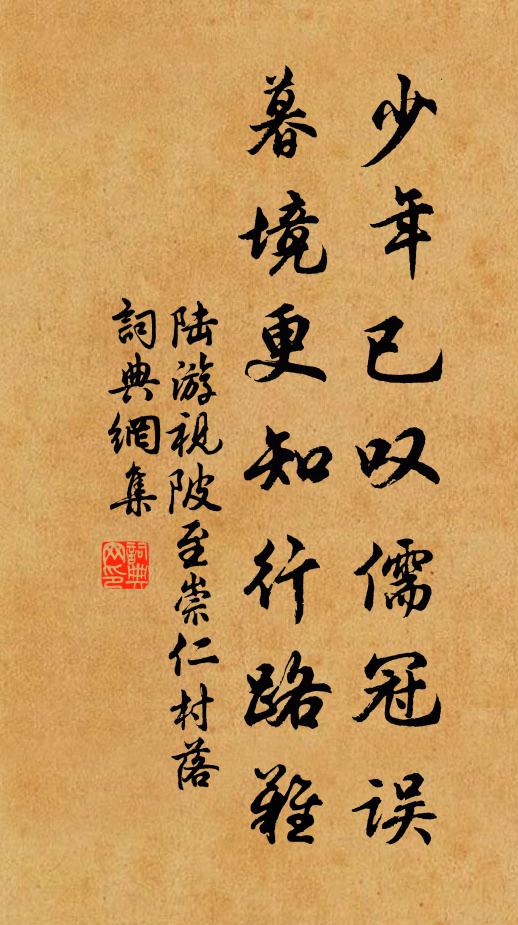 少年已叹儒冠误
暮境更知行路难
陆游视陂至崇仁村落
詞典網集
詞典
网印